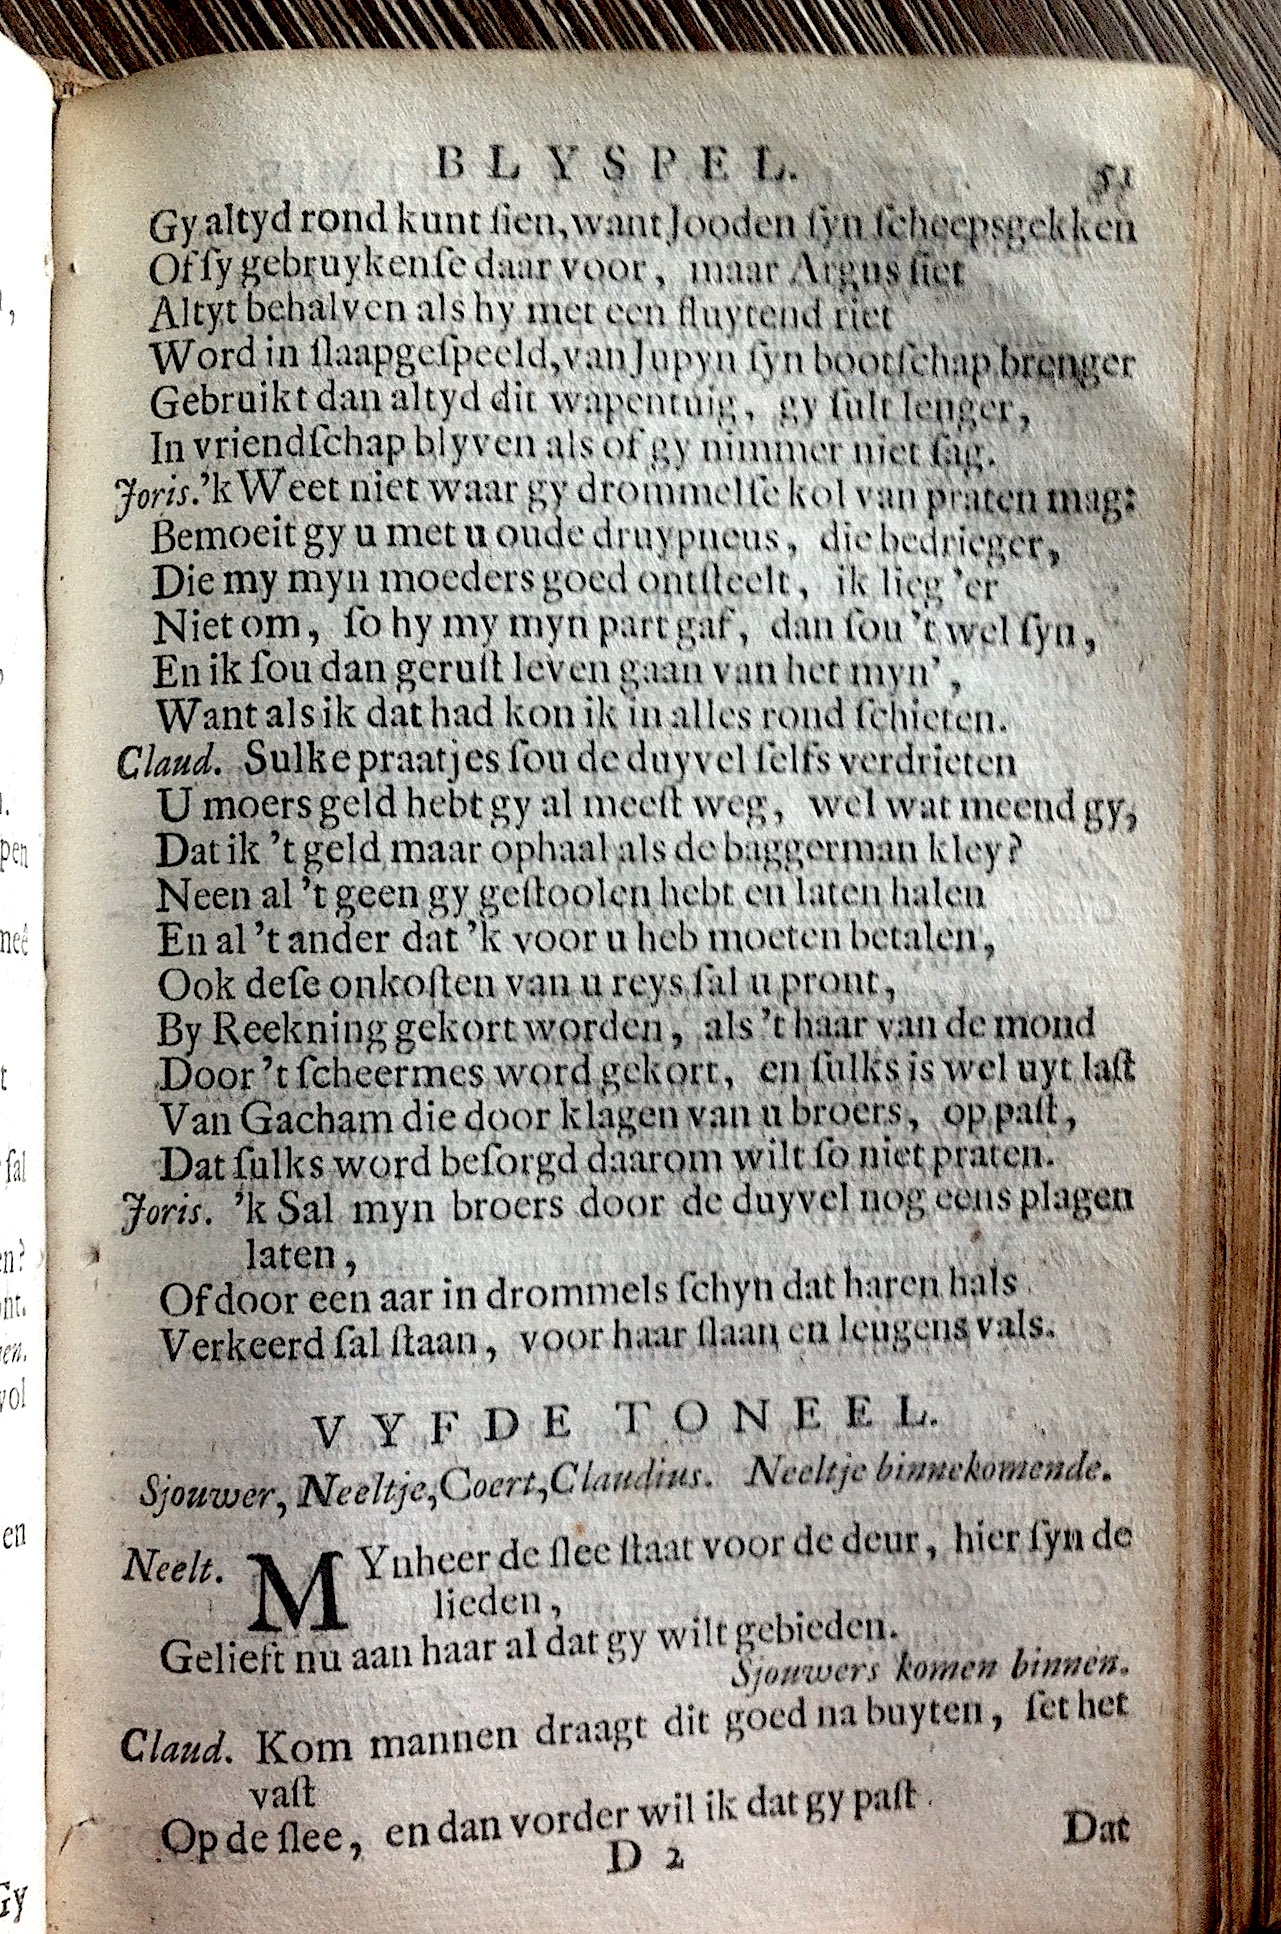 BLYSPEL. 51
Gy altyd rond kunt ſien, want Jooden ſyn ſcheepsgekken
Of ſy gebruykenſe daar voor, maar Argus ſiet
Altyt behalven als hy met een fluytend riet
Word in ſlaapgeſpeeld, van Jupyn ſyn bootſchap brenger
Gebruikt dan altyd dit wapentuig, gy ſult lenger,
In vriendſchap blyven als of gy nimmer niet ſag.
Joris. 'k Weet niet waar gy drommelſe kol van praten mag:
Bemoeit gy u met u oude druypneus, die bedrieger,
Die my myn moeders goed ontſteelt, ik lieg 'er
Niet om, ſo hy my myn part gaf, dan ſou 't wel ſyn,
En ik ſou dan geruſt leven gaan van het myn',
Want als ik dat had kon ik in alles rond ſchieten.
Claud. Sulke praatjes ſou de duyvel ſelfs verdrieten
U moers geld hebt gy al meeſt weg, wel wat meend gy,
Dat ik 't geld maar ophaal als de baggerman kley?
Neen al 't geen gy geſtoolen hebt en laten halen
En al 't ander dat 'k voor u heb moeten betalen,
Ook deſe onkoſten van u reys ſal u pront,
By Reekning gekort worden, als 't haar van de mond
Door 't ſcheermes word gekort, en ſulks is wel uyt laſt
Van Gacham die door klagen van u broers, op paſt,
Dat ſulks word beſorgd daarom wilt ſo niet praten.
Joris. 'k Sal myn broers door de duyvel nog eens plagen
laten,
Of door een aar in drommels ſchyn dat haren hals
Verkeerd ſal ſtaan, voor haar ſlaan en leugens vals.
VYFDE TONEEL.
Sjouwer, Neeltje, Coert, Claudius. Neeltje binnekomende.
Neelt. MYnheer de ſlee ſtaat voor de deur, hier ſyn de
lieden,
Gelieft nu aan haar al dat gy wilt gebieden.
Sjouwers komen binnen.
Claud. Kom mannen draagt dit goed na buyten, ſet het
vaſt
Op de ſlee, en dan vorder wil ik dat gy paſt
D 2 Dat